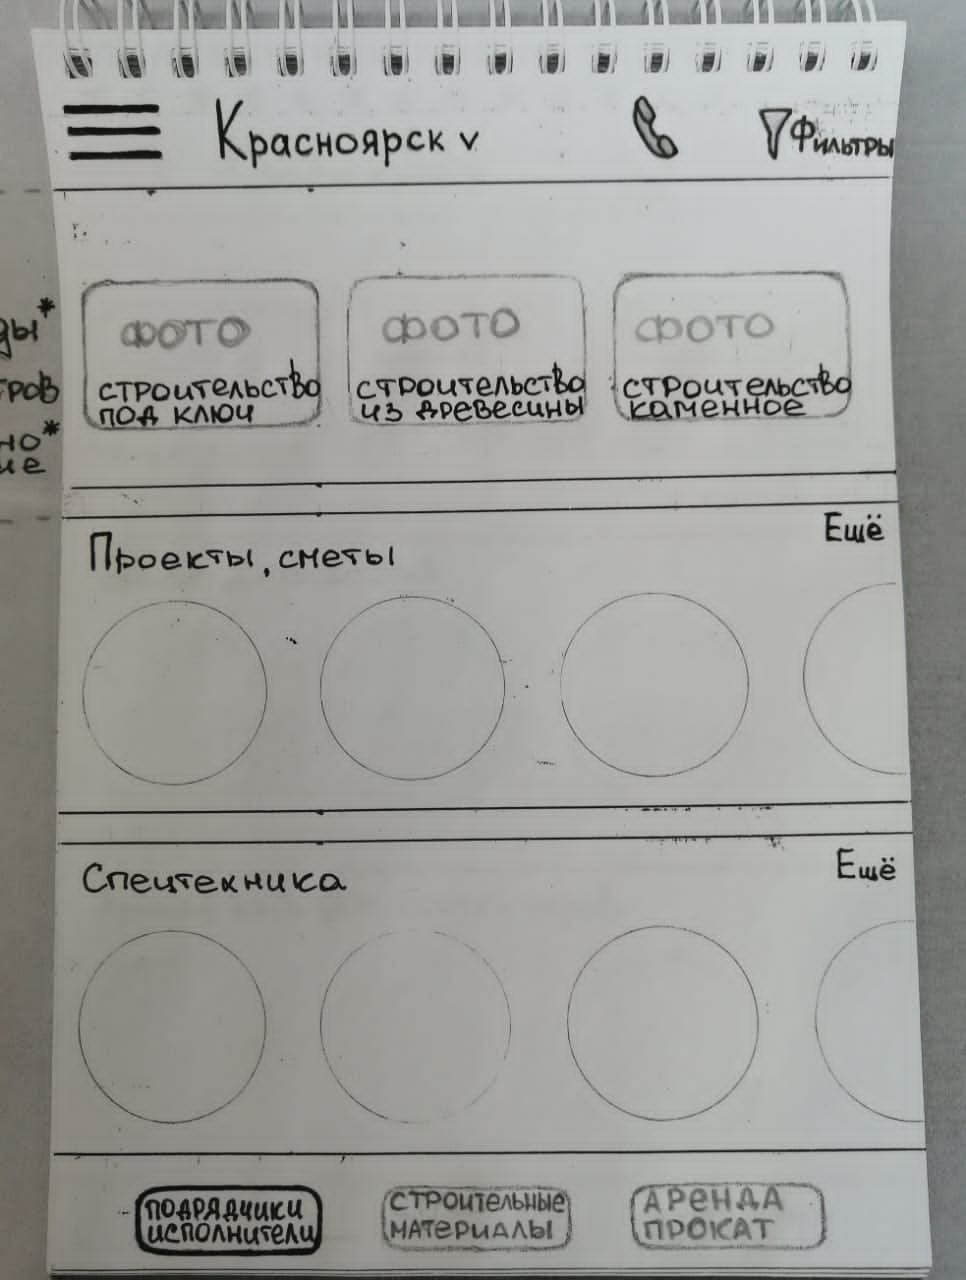 Красноярск v
Фильтры
ФОТО
СТРОИТЕЛЬСТВО
ПОД КЛЮЧ
ФОТО
СТРОИТЕЛЬСТВО
ИЗ ДРЕВЕСИНЫ
ФОТО
СТРОИТЕЛЬСТВО
КАМЕННОЕ
Проекты, сметы
Ещё
Спецтехника
Ещё
ПОДРЯДЧИКИ
ИСПОЛНИТЕЛИ
СТРОИТЕЛЬНЫЕ
МАТЕРИАЛЫ
АРЕНДА
ПРОКАТ